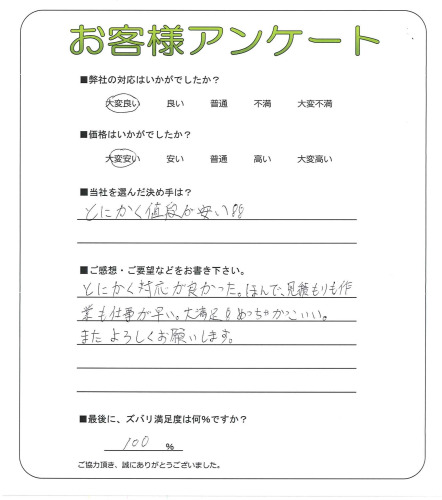 お客様アンケート
■弊社の対応はいかがでしたか?
大変良い 良い 普通 不満 大変不満
■価格はいかがでしたか?
大変安い 安い 普通 高い 大変高い
■当社を選んだ決め手は?
とにかく値段が安い!!
■ご感想・ご要望などをお書き下さい。
とにかく対応が良かった。ほんで、見積もりも作
業も仕事が早い。大満足 めっちゃかっこいい。
また よろしくお願いします。
■最後に、ズバリ満足度は何%ですか?
100 %
ご協力頂き、誠にありがとうございました。